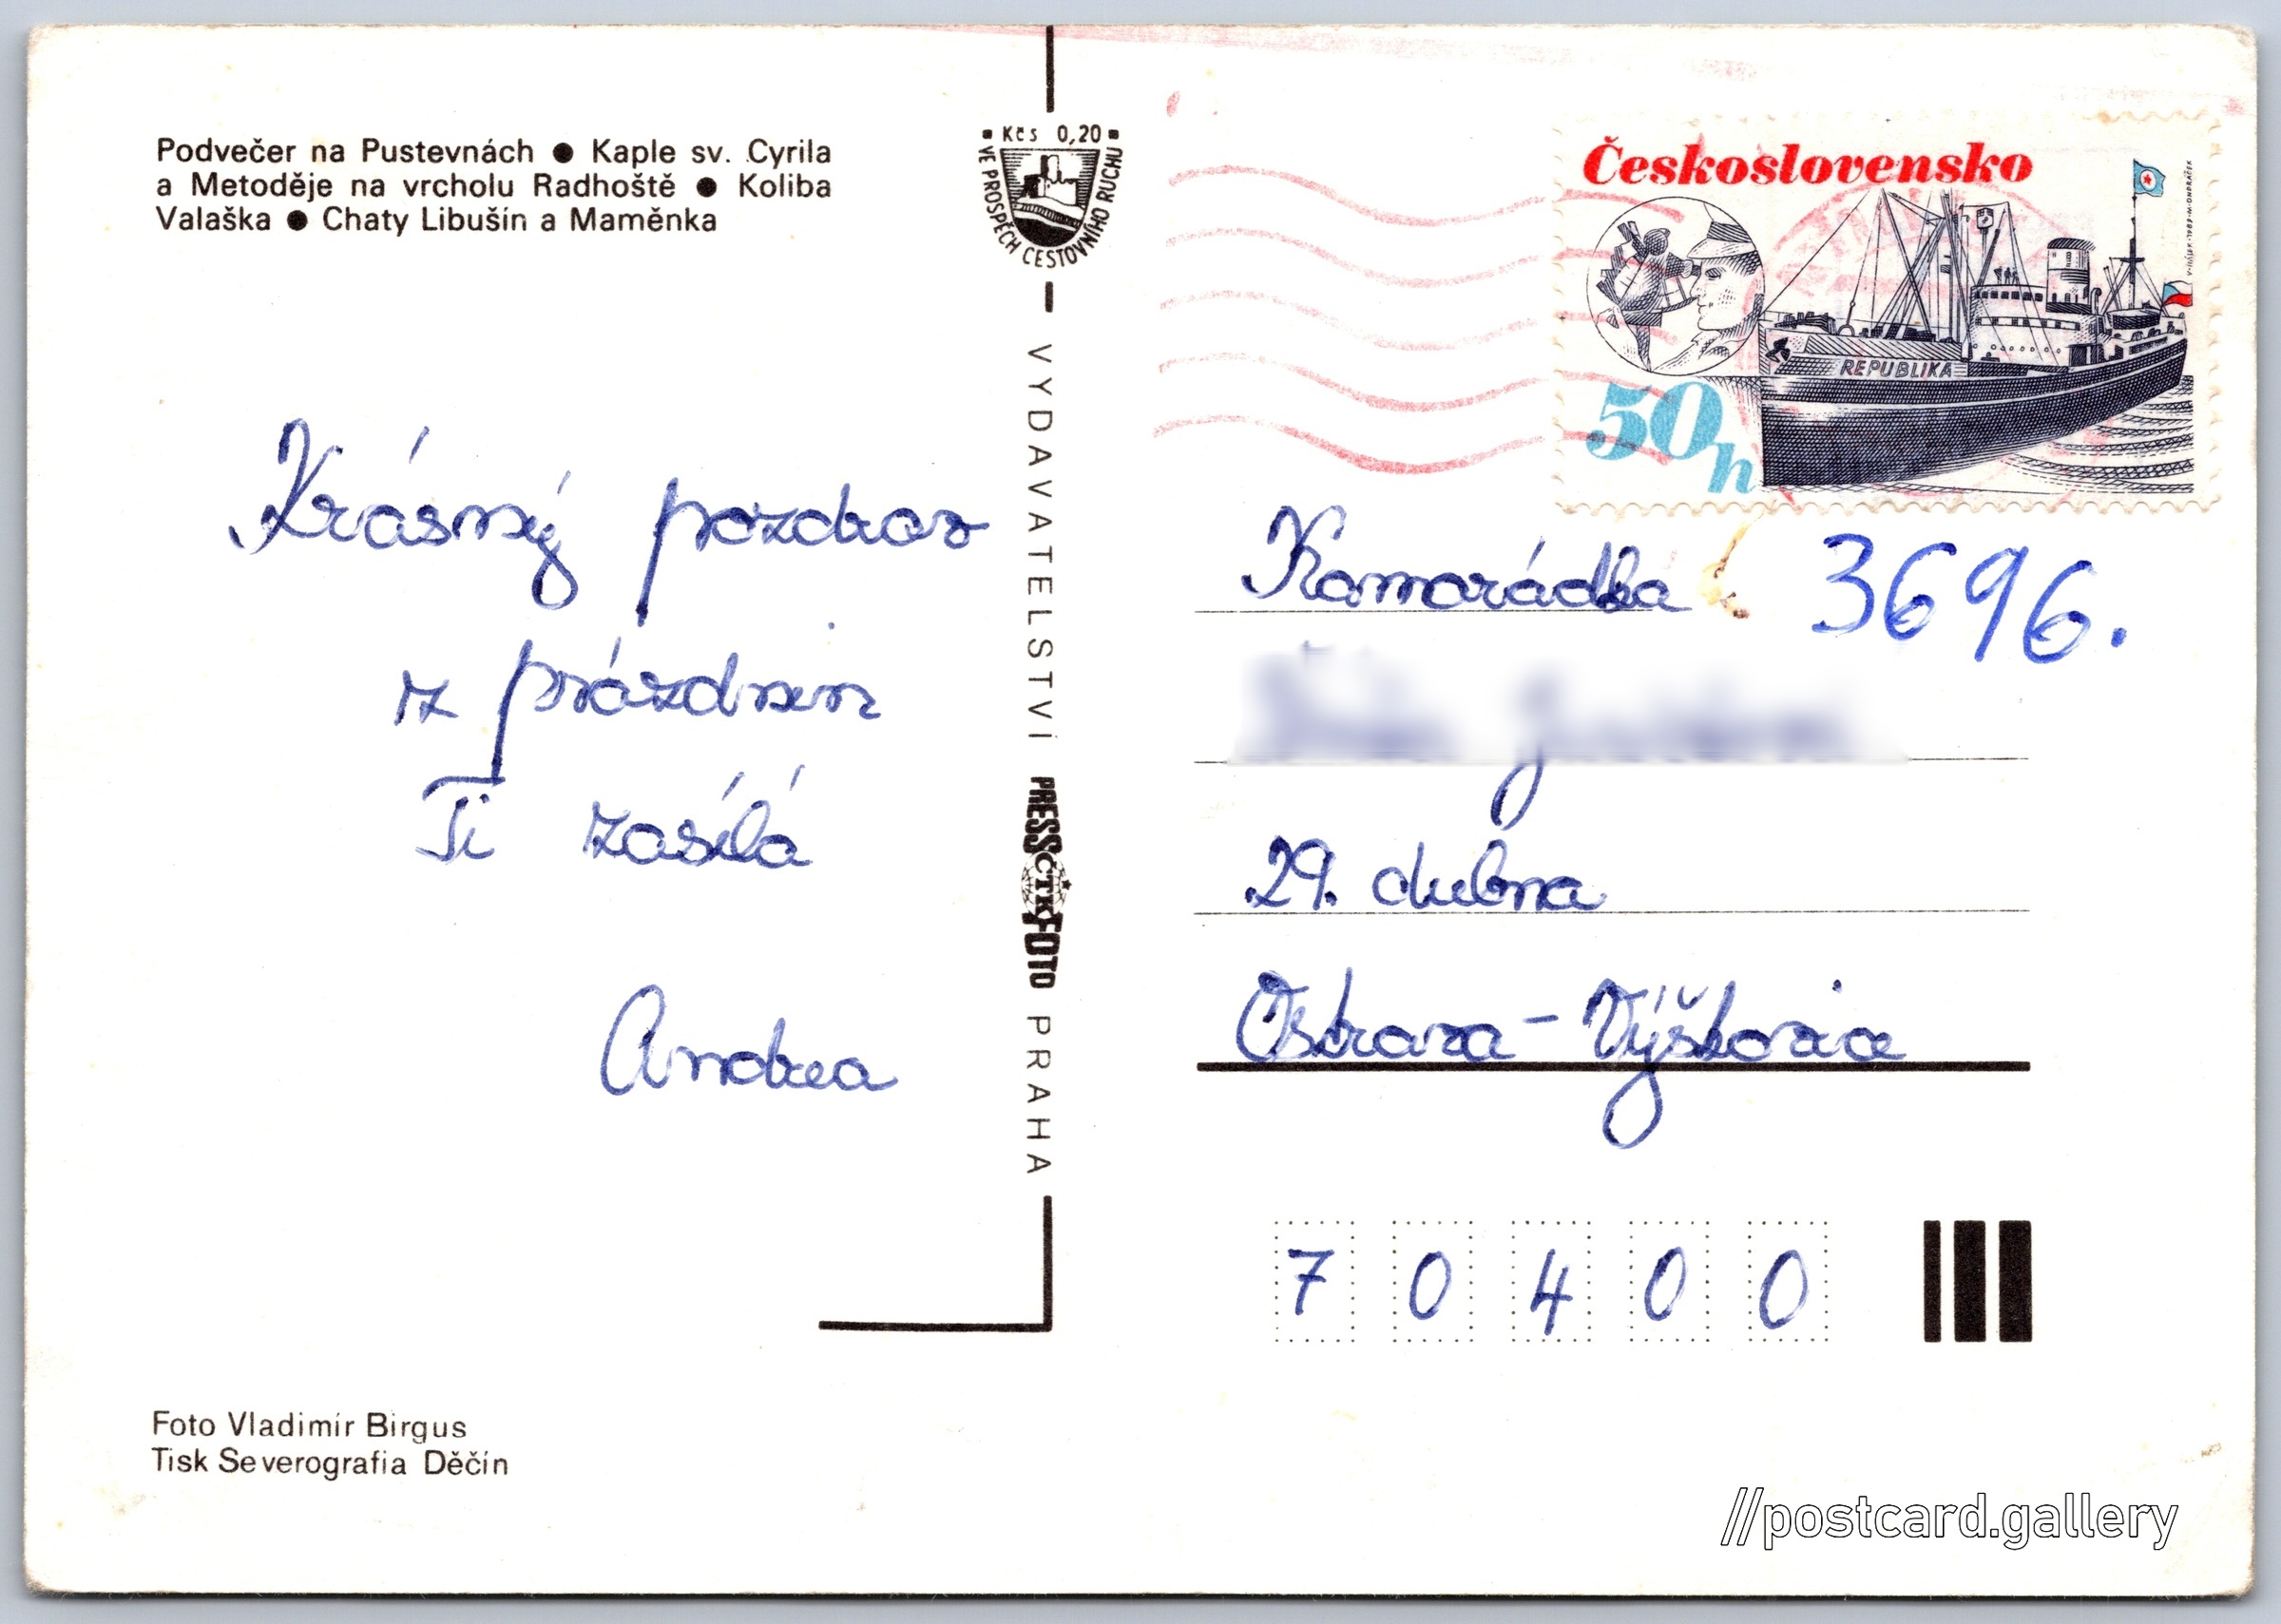 Podvečer na Pustevnách ● Kaple sv. Cyrila
a Metoděje na vrcholu Radhoště ● Koliba
Valaška ● Chaty Libušín a Maměnka
Kčs 0,20
VE PROSPĚCH CESTOVNÍHO RUCHU
Krásný pozdrav
z prázdnin
Ti zasílá
Andrea
VYDAVATELSTVÍ PRESSFOTO PRAHA
ČTK
Československo
REPUBLIKA
50h
Kamarádka
3696.
29. dubna
Ostrava - Výškovice
70400
Foto Vladimír Birgus
Tisk Severografia Děčín
//postcard.gallery